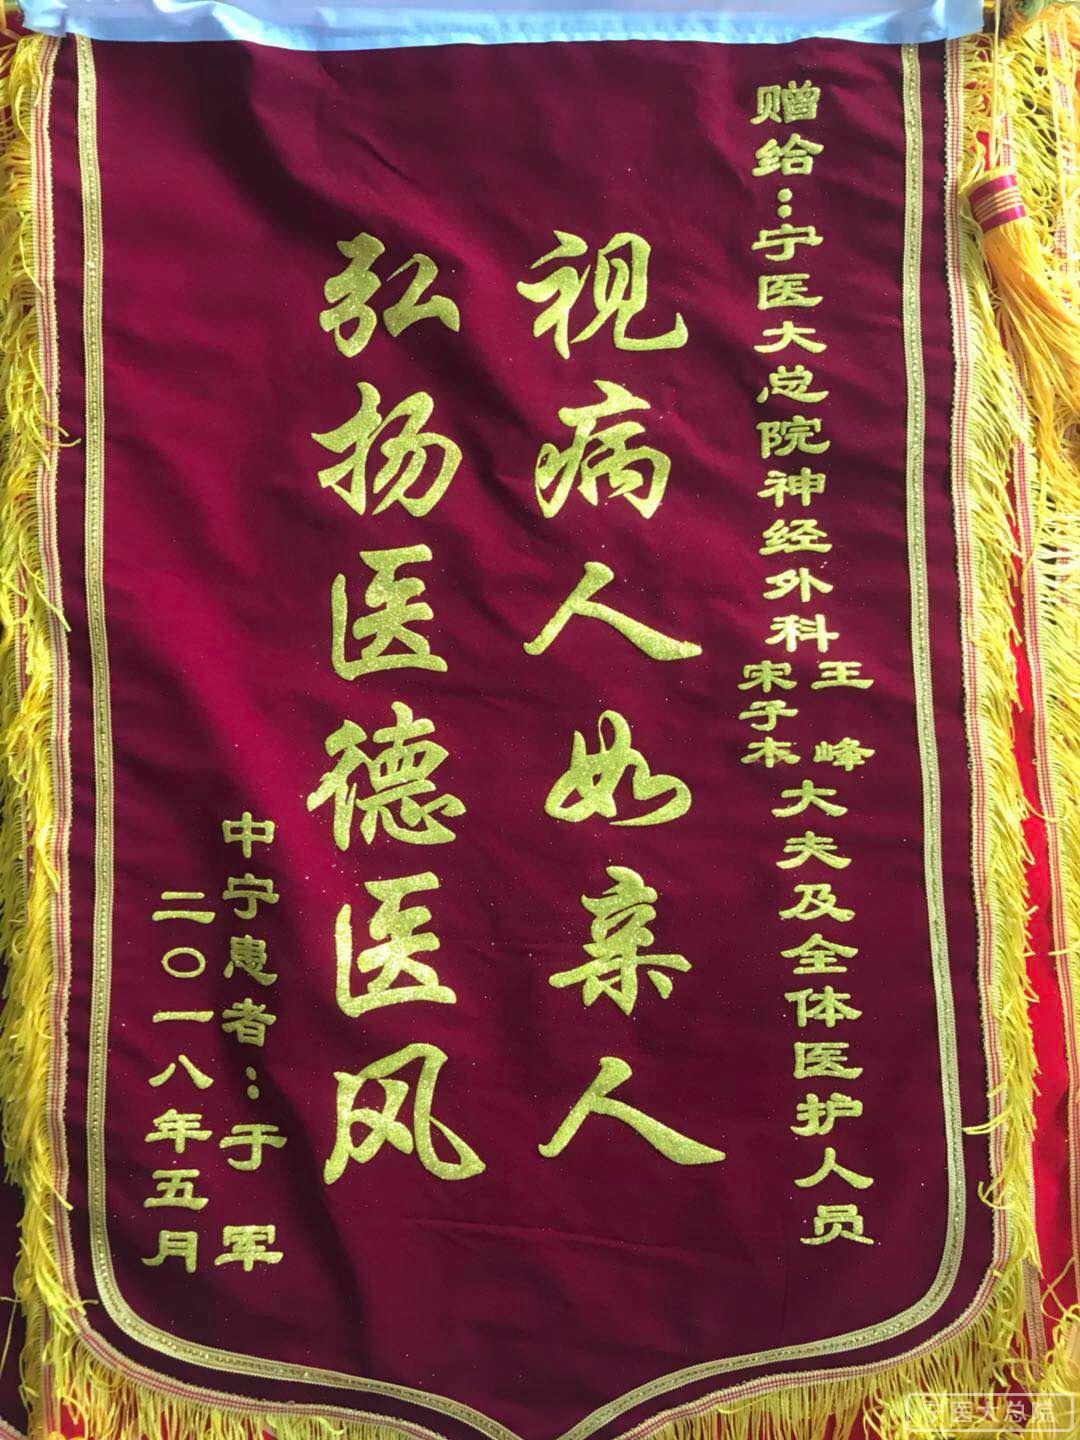 赠给：宁医大总院神经外科王峰宋子本大夫及全体医护人员
视病人如亲人
弘扬医德医风
中宁患者：于军
二〇一八年五月
宁医大总院